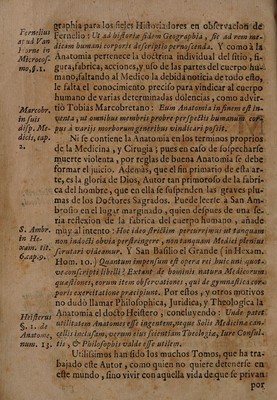 Fernelius
at ud Van
Forne in
Microcos-
mo, §.1.
graphia para los fieles Historiadores en observacion de
Fernelio: Ut ad historiæ fidem Geographia, sit ad rem me-
dicam humani corporis descriptio pernoscenda. Y como à la
Anatomia pertenece la doctrina individual del sitio, fi-
gura, fabrica, acciones, y uso de las partes del cuerpo hu-
mano, faltando al Medico la debida noticia de todo esto,
le falta el conocimiento preciso para vindicar al cuerpo
humano de varias determinadas dolencias, como advir-
Marcobr.
in suis
disp. Me-
dicis, cap.
2.
tiò Tobias Marcobretano: Eum Anatomia in finem est in-
venta, ut omnibus membris probre perspectis humanum cor-
pus à variis morborum generibus vindicari possit.
Ni se contiene la Anatomia en los terminos proprios
de la Medicina, y Cirugia; pues en caso de sospecharse
muerte violenta, por reglas de buena Anatomia se debe
formar el juicio. Ademas, que el fin primario de esta ar-
te, es la gloria de Dios, Autor tan primoroso de la fabri-
ca del hombre, que en ella se suspenden las graves plu-
mas de los Doctores Sagrados. Puede leerse à San Am-
brosio en el lugar marginado, quien despues de una se-
ria reflexion de la fabrica del cuerpo humano, añade
S. Ambr.
in He-
xam. lit.
6. cap. 9.
muy al intento: Hoc ideo strictim percurrimus ut tanquam
non indocti obvia perstringere, non tanquam Medici plenius
scrutari videamur, Y San Basilio el Grande (in Hexam.
Hom. 10.) Quantum impensum est opera eis humani quot-
ve conscripti libelli? Extant de hominis natura Medicorum
quæstiones, eorum item observationes, qui de gymnastica cor-
poris exercitatione præcipiunt. Por estos, y otros motivos
no dudò llamar Philosophica, Juridica, y Theologica la
Heisterus
§. 1. de
Anatome,
num. 13.
Anatomia el docto Heistero, concluyendo: Unde patet
utilitatem Anatomes esse ingentem, neque Solis Medicina can-
cellis inclusam, verum eius scientiam Theologis, Jure Consul-
tis, & Philosophis valde esse utilem.
Utilissimos han sido los muchos Tomos, que ha tra-
bajado este Autor, como quien no quiere detenerse en
este mundo, sino vivir con aquella vida de que se privan
por